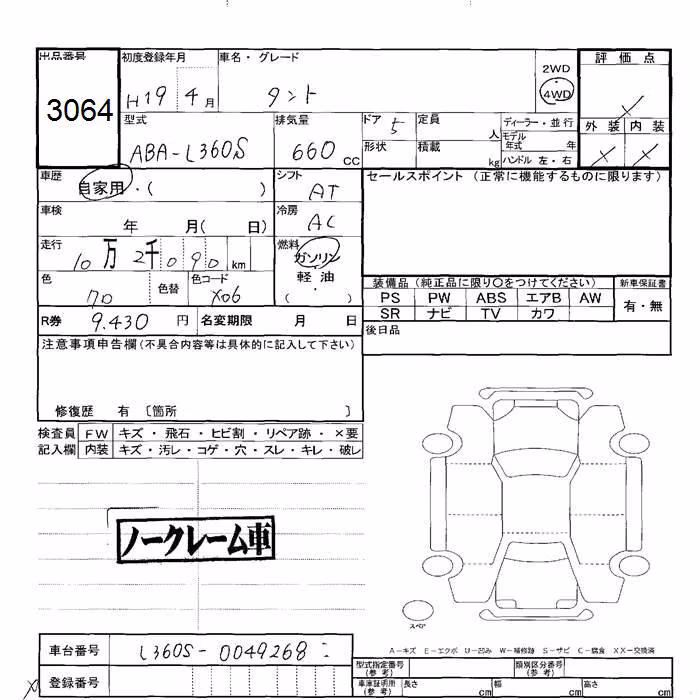 出品番号 初度登録年月 車名・グレード 2WD 評価点
3064 H19 4月 タント 4WD
外装 内装
型式 排気量 ドア 定員 ディーラー・並行
ABA-L360S 660 cc 5 人 モデル年式 年
形状 積載 kg ハンドル 左・右
車歴 シフト セールスポイント (正常に機能するものに限ります)
自家用・( ) AT
車検 冷房
年 月( 日) AC
走行 燃料
10万2千090km ガソリン
色 色替 色コード 軽油・( )
70 X06
装備品 (純正品に限り○をつけてください) 新車保証書
PS PW ABS エアB AW 有・無
SR ナビ TV カワ
R券 9.430 円 名変期限 月 日
後日品
注意事項申告欄(不具合内容等は具体的に記入して下さい)
修復歴 有 〔箇所 〕
検査員 FW キズ・飛石・ヒビ割・リペア跡・×要
記入欄 内装 キズ・汚レ・コゲ・穴・スレ・キレ・破レ
ノークレーム車
スペア
A-キズ E-エクボ U-凹み W-補修跡 S-サビ C-腐食 XX-交換済
車台番号 L360S-0049268
登録番号
型式指定番号(参考) 類別区分番号(参考)
車庫証明用(参考) 長さ cm 幅 cm 高さ cm